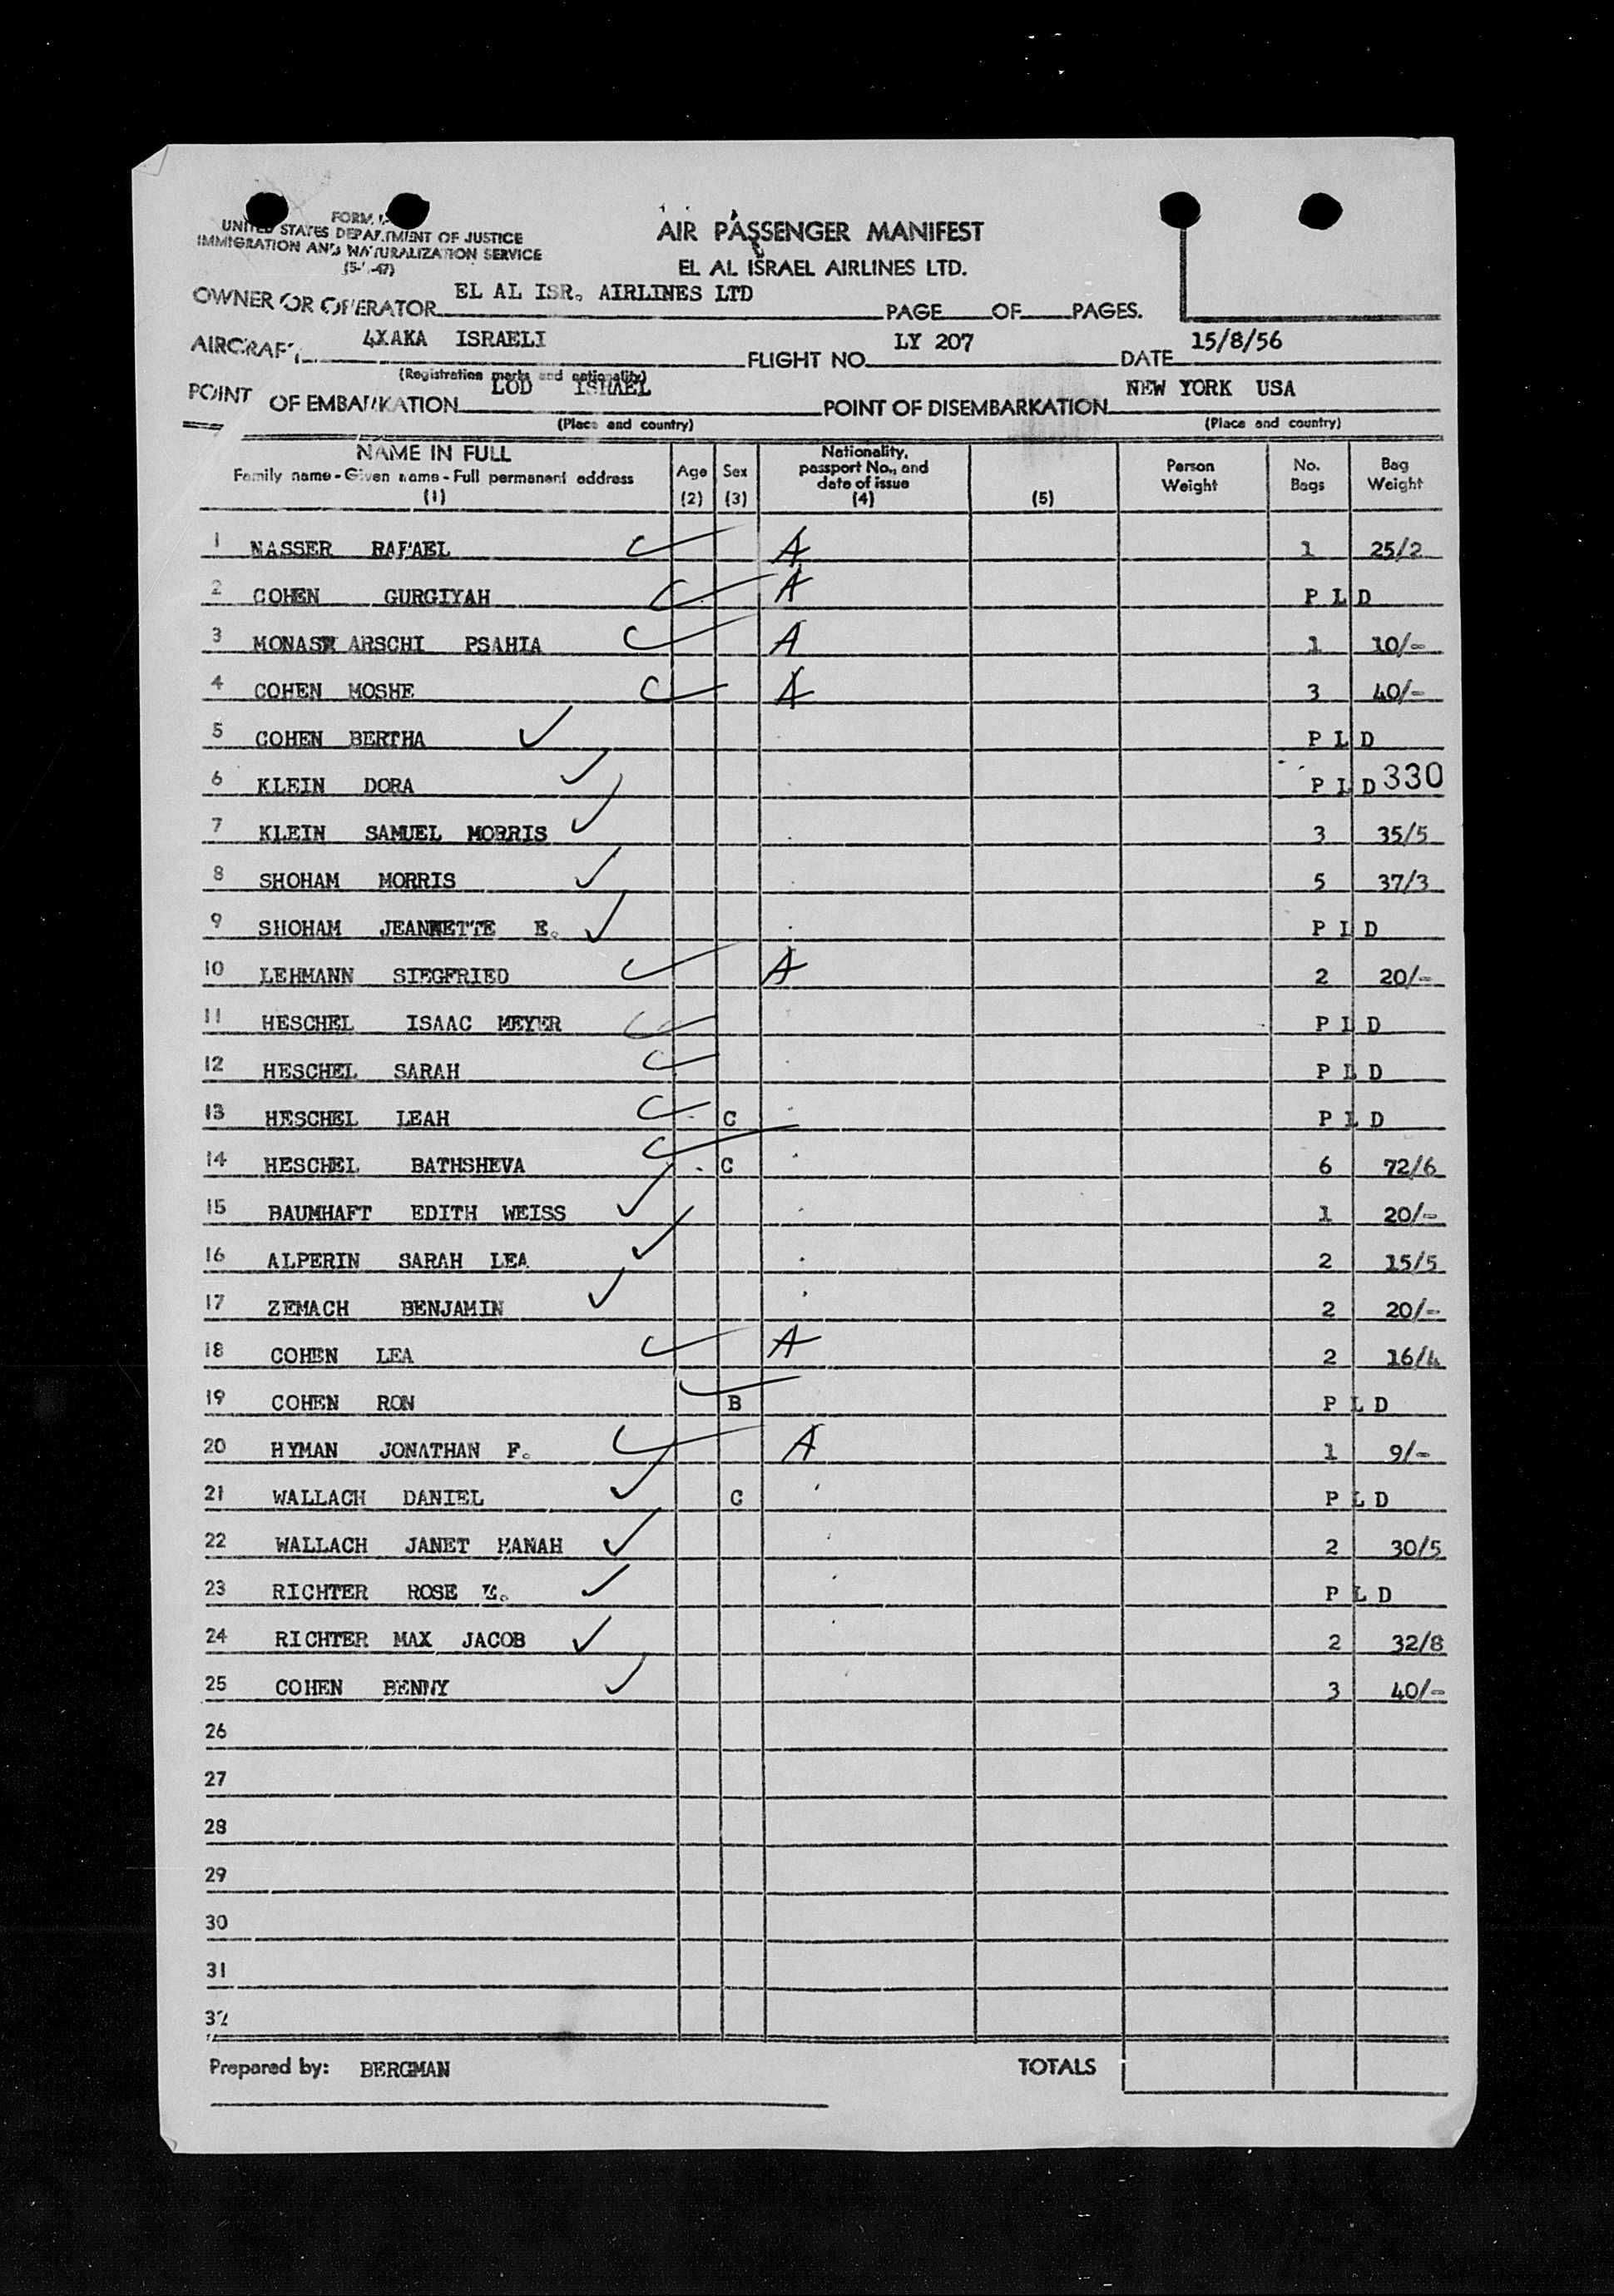 FORM I-
UNITED STATES DEPARTMENT OF JUSTICE
IMMIGRATION AND NATURALIZATION SERVICE
AIR PASSENGER MANIFEST
EL AL ISRAEL AIRLINES LTD.
OWNER OR OPERATOR EL AL ISR. AIRLINES LTD PAGE OF PAGES.
AIRCRAFT 4XAKA ISRAELI FLIGHT NO. LY 207 DATE 15/8/56
(Registration marks and nationality)
POINT OF EMBARKATION LOD ISRAEL POINT OF DISEMBARKATION NEW YORK USA
(Place and country) (Place and country)
NAME IN FULL Family name - Given name - Full permanent address (1) Age (2) Sex (3) Nationality, passport No., and date of issue (4) (5) Person Weight No. Bags Bag Weight
1 NASSER RAFAEL A 1 25/2
2 COHEN GURGIYAH A P L D
3 MONASH ARSCHI PSAHIA A 1 10/-
4 COHEN MOSHE A 3 40/-
5 COHEN BERTHA P L D
6 KLEIN DORA P L D 330
7 KLEIN SAMUEL MORRIS 3 35/5
8 SHOHAM MORRIS 5 37/3
9 SHOHAM JEANNETTE E. P L D
10 LEHMANN SIEGFRIED A 2 20/-
11 HESCHEL ISAAC MEYER P L D
12 HESCHEL SARAH P L D
13 HESCHEL LEAH C P L D
14 HESCHEL BATHSHEVA C 6 72/6
15 BAUMHAFT EDITH WEISS 1 20/-
16 ALPERIN SARAH LEA 2 15/5
17 ZEMACH BENJAMIN 2 20/-
18 COHEN LEA A 2 16/4
19 COHEN RON B P L D
20 HYMAN JONATHAN F. A 1 9/-
21 WALLACH DANIEL C P L D
22 WALLACH JANET HANAH 2 30/5
23 RICHTER ROSE P L D
24 RICHTER MAX JACOB 2 32/8
25 COHEN BENNY 3 40/-
26
27
28
29
30
31
32
Prepared by: BERGMAN TOTALS